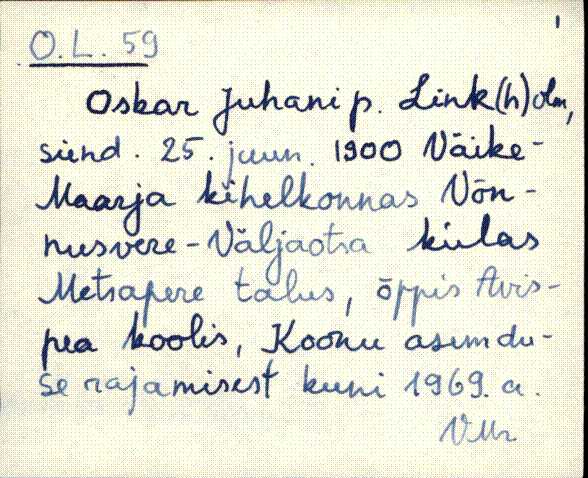 1
O.L. 59
Oskar Juhani p. Link(h)olm,
sünd. 25. juun. 1900 Väike-
Maarja kihelkonnas Võn-
nusvere-Väljaotsa külas
Metsapere talus, õppis Avis-
pea koolis, Koonu asundu-
se rajamisest kuni 1969. a.
VMr